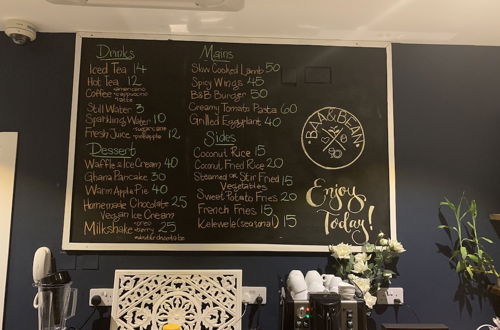 Drinks
Iced Tea 14
Hot Tea 12
Coffee •americano
•cappuccino
•latte
Still Water 3
Sparkling Water 10
Fresh Juice •sugarcane
•pineapple 12
Dessert
Waffles & Ice Cream 40
Ghana Pancake 30
Warm Apple Pie 40
Homemade Chocolate 25
Vegan Ice Cream
Milkshake •oreo
•berry 25
Mains
Slow Cooked Lamb 50
Spicy Wings 45
B&B Burger 50
Creamy Tomato Pasta 60
Grilled Eggplant 40
Sides
Coconut Rice 15
Coconut Fried Rice 20
Steamed or Stir Fried 15
Vegetables
Sweet Potato Fries 20
French Fries 15
Kelewele (seasonal) 15
BAA & BEAN
Enjoy
Today!